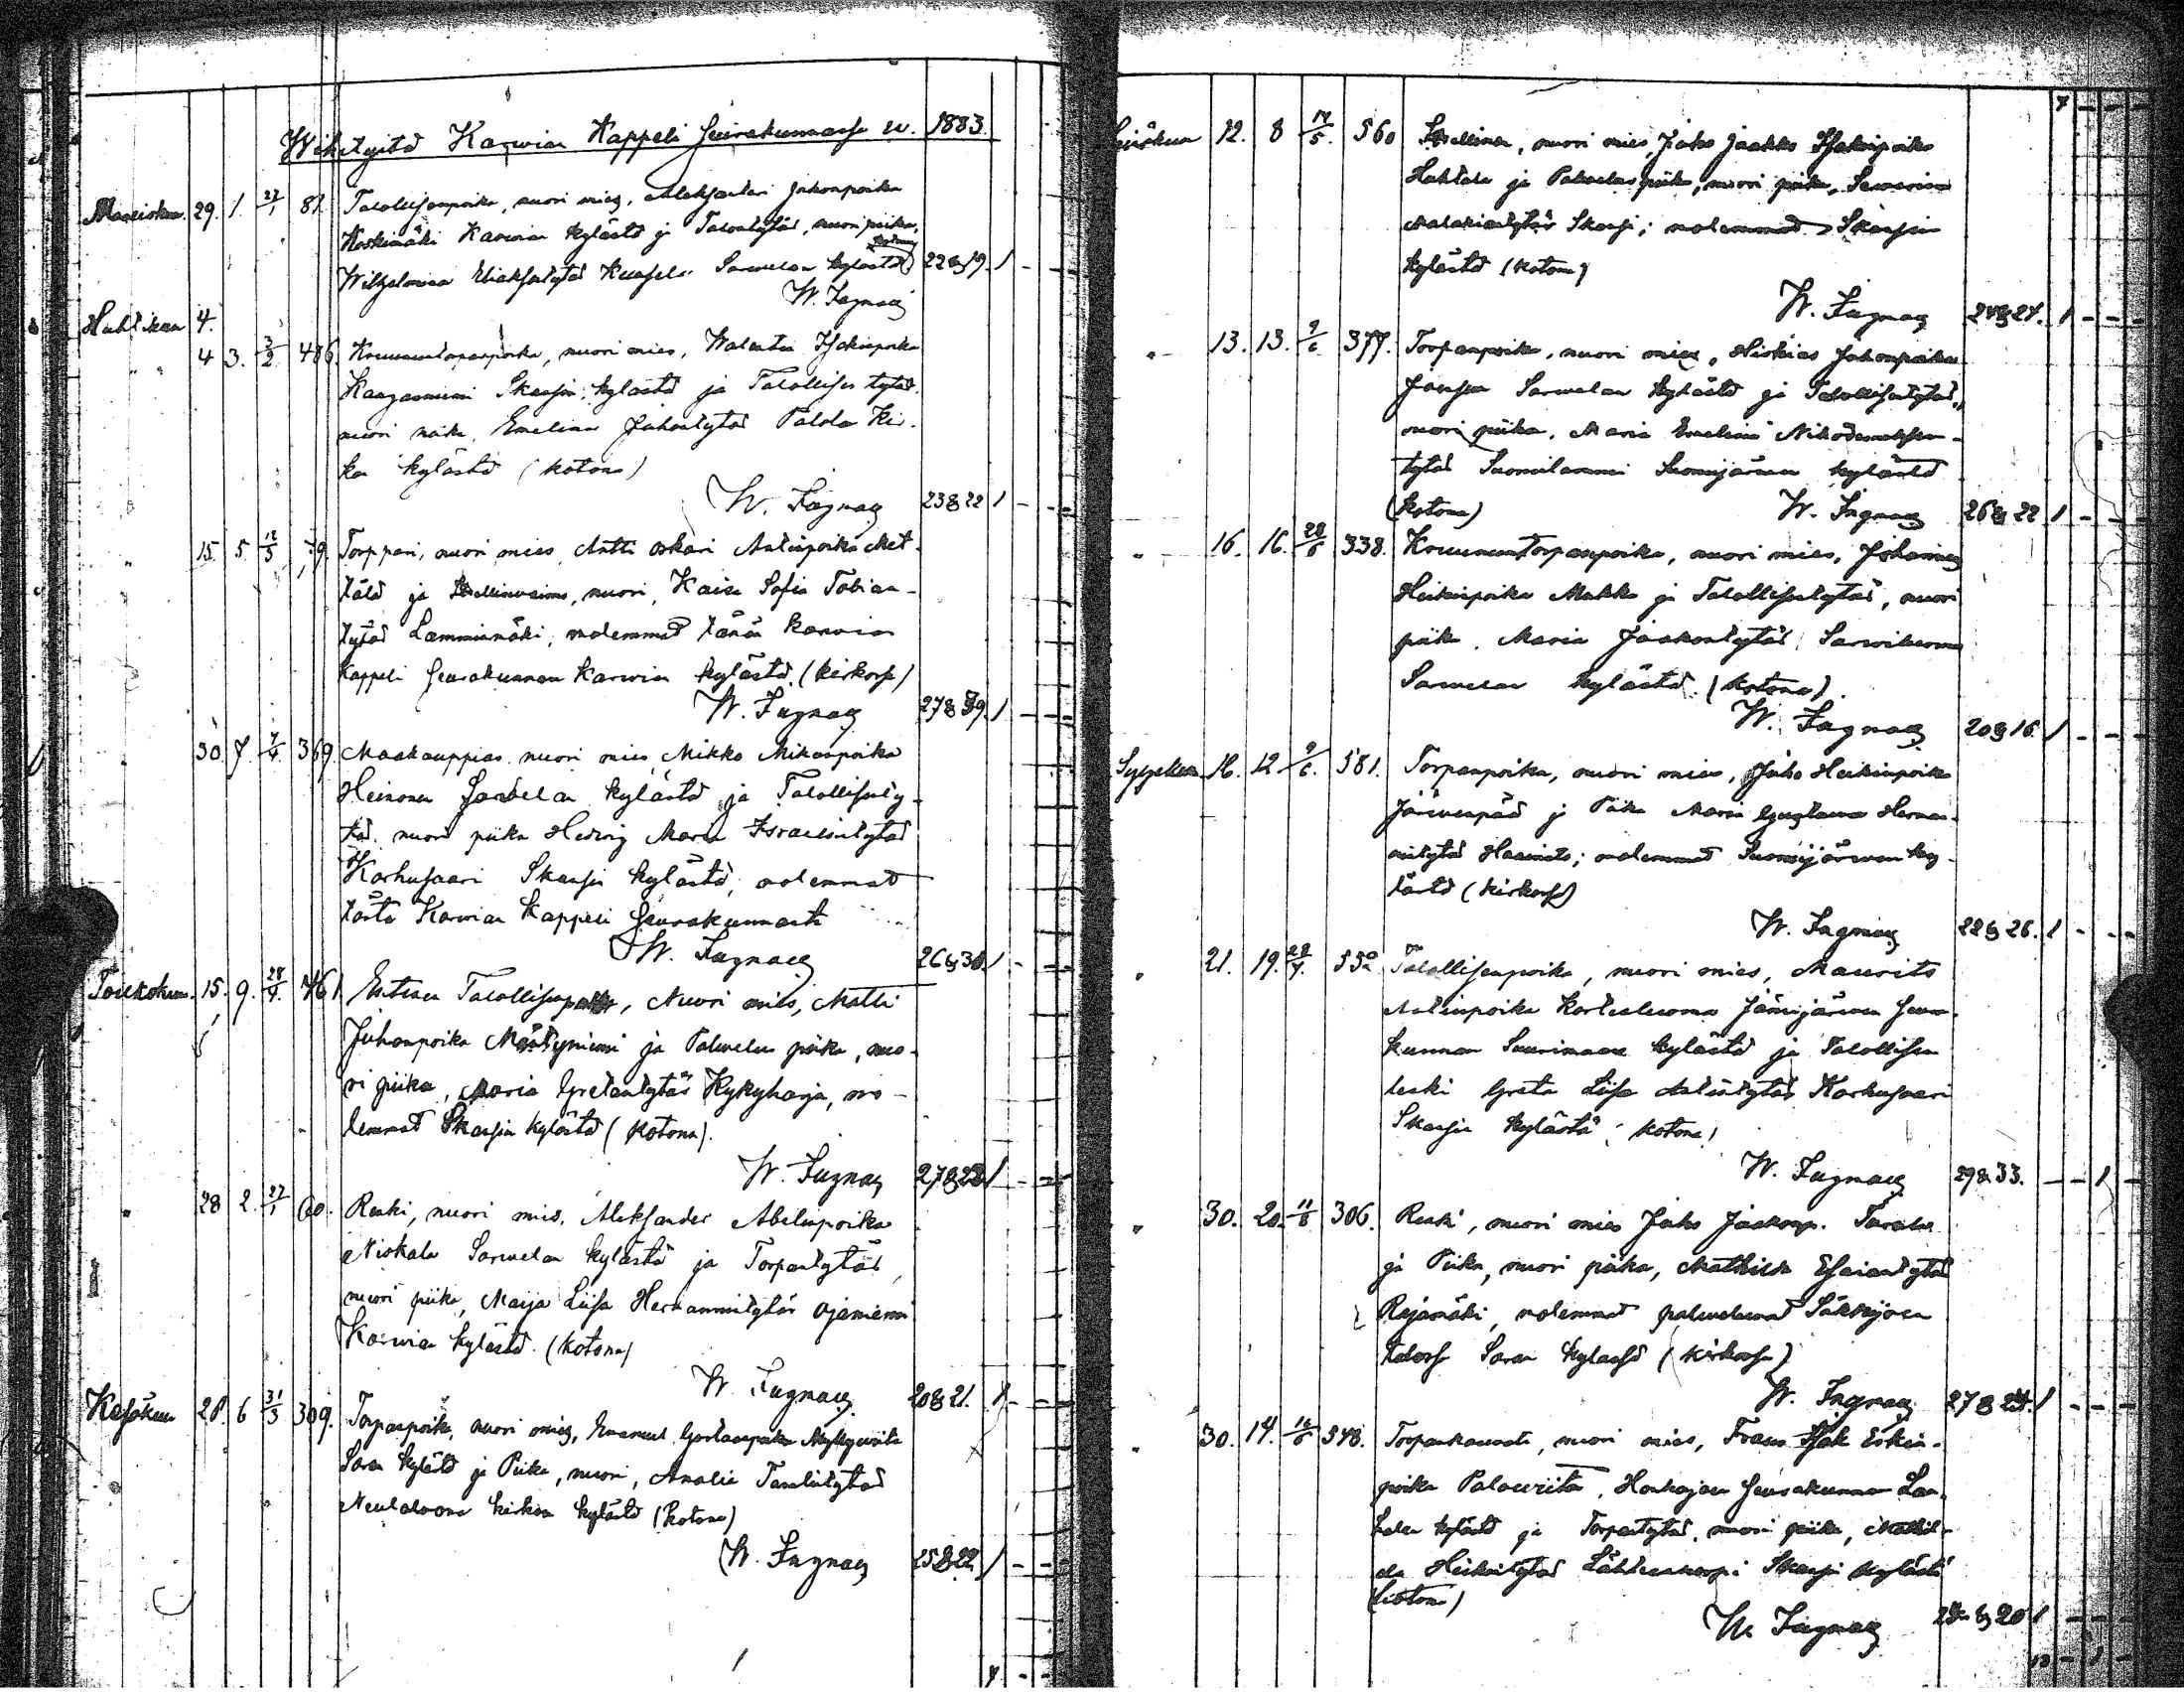 Wihityitä Karwian Kappeli Seurakunnassa w. 1883.
29. 1. 27/1 81. Talollisenpoika, nuori mies, Aleksanteri Juhonpoika
Koskimäki Karwian kylästä ja Talontytär, nuori piika,
Wilhelmina Eliaksentytär Sarwelan kylästä 22 & 19. 1
W. Fagnaes
Huhtikuu 4.
4 3. 3/2 486. Kruununtorpanpoika, nuori mies, Walentin Isakinpoika
Kangasniemi Skansin kylästä ja Talollisen tytär
nuori piika, Emelina Juhontytär Palola Kir-
kon kylästä (kotona)
W. Fagnaes 23 & 22 1 - -
15. 5. 12/3 79. Torppari, nuori mies, Antti Oskari Antinpoika Met-
tälä ja nuori, Kaisa Sofia Tobian-
tytär Lamminmäki, molemmat tään Karwian
Kappeli Seurakunnan Karwian kylästä. (kirkossa)
W. Fagnaes 27 & 39. 1 - -
30. 7. 7/4 369. Maakauppias nuori mies, Mikko Mikonpoika
Heinonen Sarvelan kylästä ja Talollisenty-
tär nuori piika Hedvig Maria Israelintytär
Karhusaari Skansin kylästä, molemmat
tästä Karwian Kappeli Seurakunnasta
W. Fagnaes 26 & 30. 1 - -
Toukokuu. 15. 9. 28/4 461. Entinen Talollisenpoika, Nuori mies, Matti
Juhonpoika Mäntyniemi ja Palwelus piika, nuo-
ri piika, Maria Gretantytär Kykyharja, mo-
lemmat Skansin kylästä (kotona).
W. Fagnaes 27 & 28 1 - -
" 28 2. 27/1 60. Renki, nuori mies, Aleksander Abelinpoika
Niskala Sarwelan kylästä ja Torpantytär,
nuori piika, Maija Liisa Hermannintytär Ojaniemi
Karwian kylästä. (kotona)
W. Fagnaes 20 & 21. 1 - -
Kesäkuu 28. 6 31/3 309. Torpanpoika, nuori mies, Emanuel Gustaanpoika
Saran kylästä ja Piika, nuori, Amalia
Neulaluoma kirkon kylästä (kotona)
W. Fagnaes 25 & 22 1 - -
7 - -
7 - - -
12. 8 14/5. 560 Itsellinen, nuori mies, Juho Jaakko Isakinpoika
Hahtola ja Palweluspiika, nuori piika, Sewerina
Malakiantytär Skansi; molemmat Skansin
kylästä (kotona)
W. Fagnaes 24 & 24. 1 - - -
" 13. 13. 9/6 377. Torpanpoika, nuori mies, Hiskias Juhonpoika
Sarwelan kylästä ja Talollisentytär,
nuori piika, Maria Emelina Nikodemuksen-
tytär Suomilammi Suomijärwen kylästä
(kotona) W. Fagnaes 26 & 22 1 - - -
" 16. 16. 28/6 338. Kruununtorpanpoika, nuori mies, Johannes
Heikinpoika Mukko ja Talollisentytär, nuori
piika, Maria Jaakontytär Sarwiluoma
Sarwelan kylästä. (kotona).
W. Fagnaes 20 & 16. 1 - - -
16. 12 9/6. 581. Torpanpoika, nuori mies, Juho Heikinpoika
Järwenpää ja Piika Maria Gustawa Herman-
nintytär Haanisto; molemmat Suomijärwen ky-
lästä (kirkossa)
W. Fagnaes 22 & 26. 1 - - -
" 21. 19. 28/7. 552 Talollisenpoika, nuori mies, Maurits
Antinpoika Kortesluoma Jämijärwen Seura-
kunnan Suurimaan kylästä ja Talollisen
leski Greta Liisa Antintytär Karhusaari
Skansin kylästä (kotona)
W. Fagnaes 29 & 33. - - 1 -
" 30. 20. 11/8 306. Renki, nuori mies Juho Jaakonp.
ja Piika, nuori piika, Mathilda Esaiantytär
Rajamäki, molemmat palwelewat Säkkijoen
talossa Saran kylässä (kirkossa)
W. Fagnaes 27 & 24. 1 - - -
" 30. 14. 16/6 548. nuori mies, Frans Isak
poika Palowiita, Honkajoen Seurakunnan
kylästä ja Torpantytär, nuori piika, Mathil-
da Heikintytär Lähteenkorpi Skansin kylästä
(kotona)
W. Fagnaes 24 & 20 1 - - -